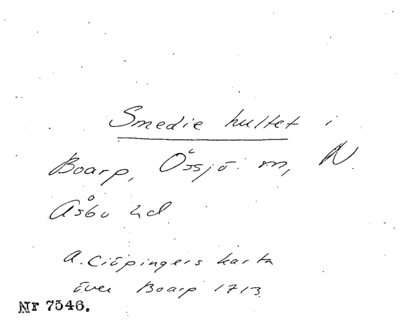 Smedie hultet i
Boarp, Össjö. m, N.
Åsbo hd
A. Ciöpingers karta
över Boarp 1713
Nr 7546.